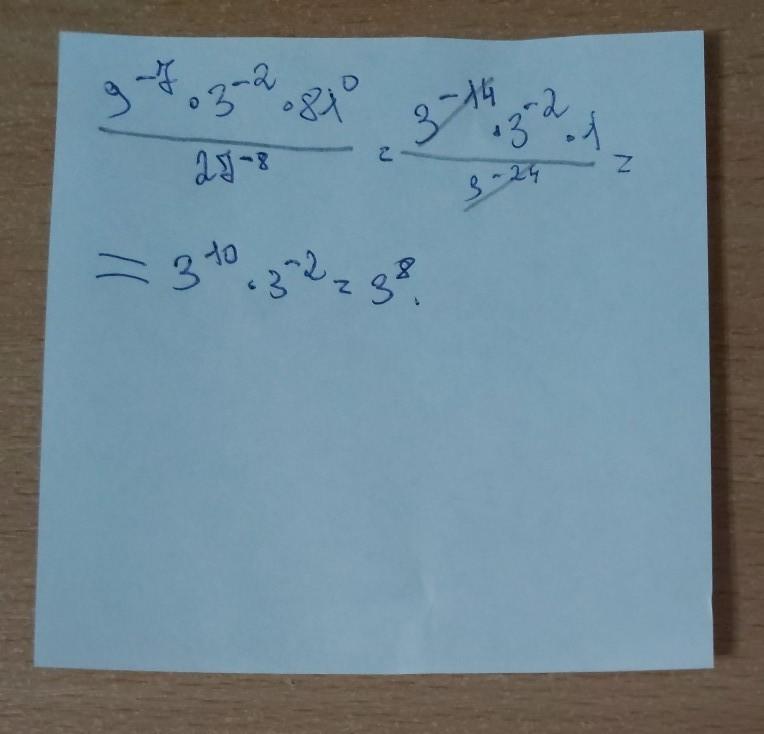 9⁻⁷ · 3⁻² · 81⁰ / 27⁻⁸ = 3⁻¹⁴ · 3⁻² · 1 / 3⁻²⁴ =
= 3¹⁰ · 3⁻² = 3⁸.